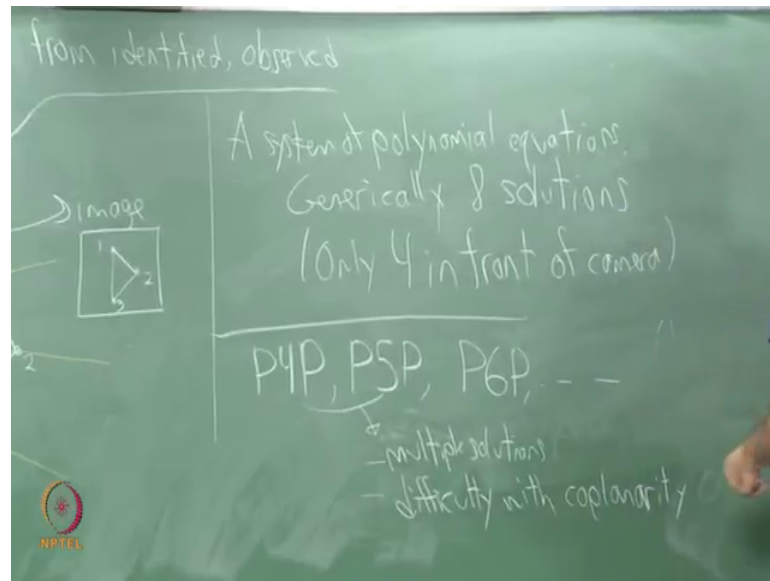 from identified, observed
image
1
2
3
2
A system of polynomial equations.
Generically 8 solutions
(Only 4 in front of camera)
P4P, P5P, P6P, - -
- multiple solutions
- difficulty with coplanarity
NPTEL